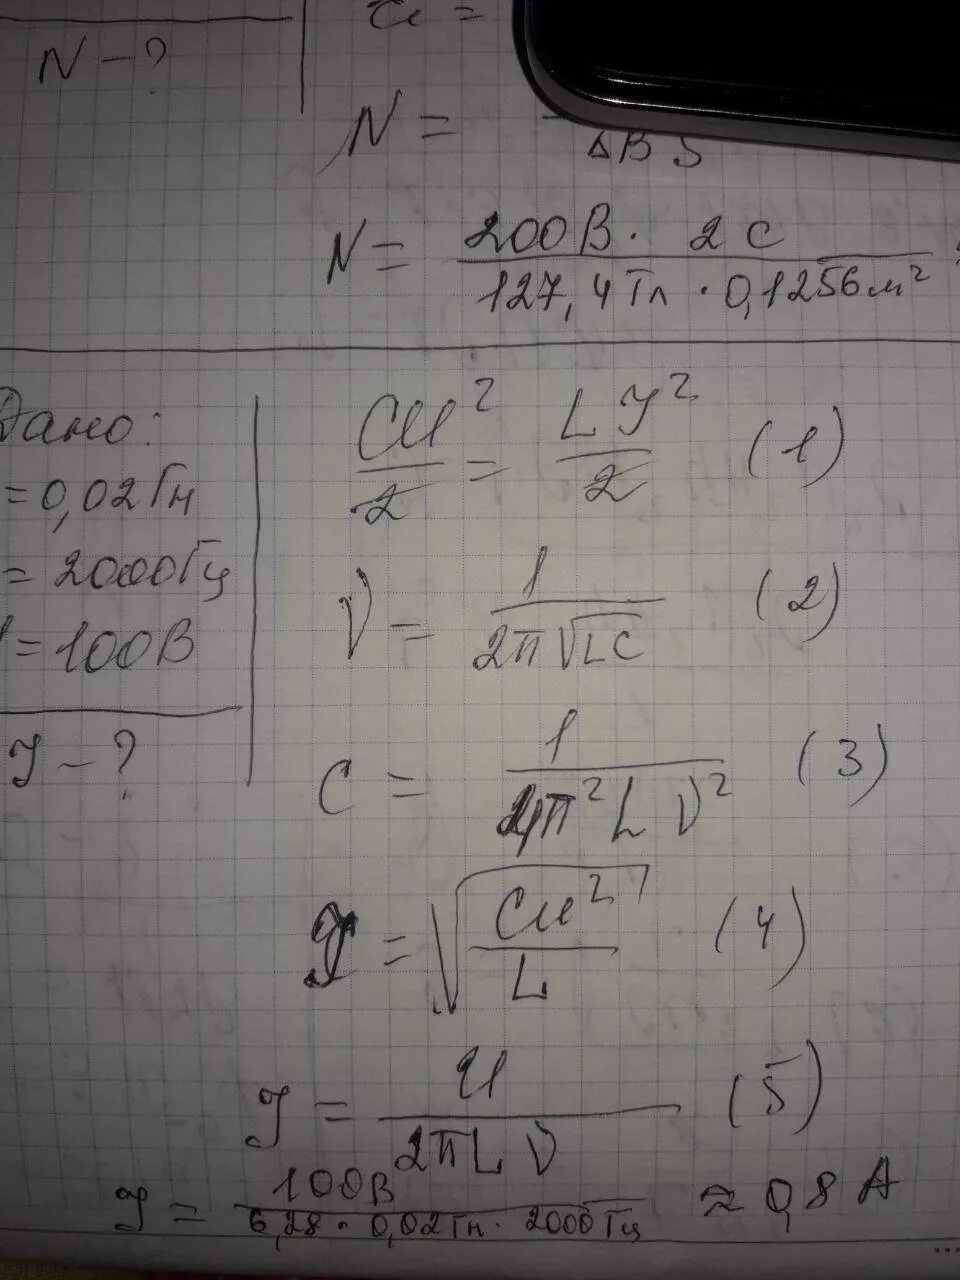 N - ?
N = ΔB S
N = 200В · 2 с / 127,4 Тл · 0,1256 м²
Дано:
= 0,02 Гн
= 2000 Гц
= 100 В
J - ?
CU²/2 = LJ²/2 (1)
ν = 1/2π√LC (2)
C = 1/4π²Lν² (3)
J = √CU²/L (4)
J = U/2πLν (5)
J = 100В/6,28 · 0,02 Гн · 2000 Гц ≈ 0,8 А